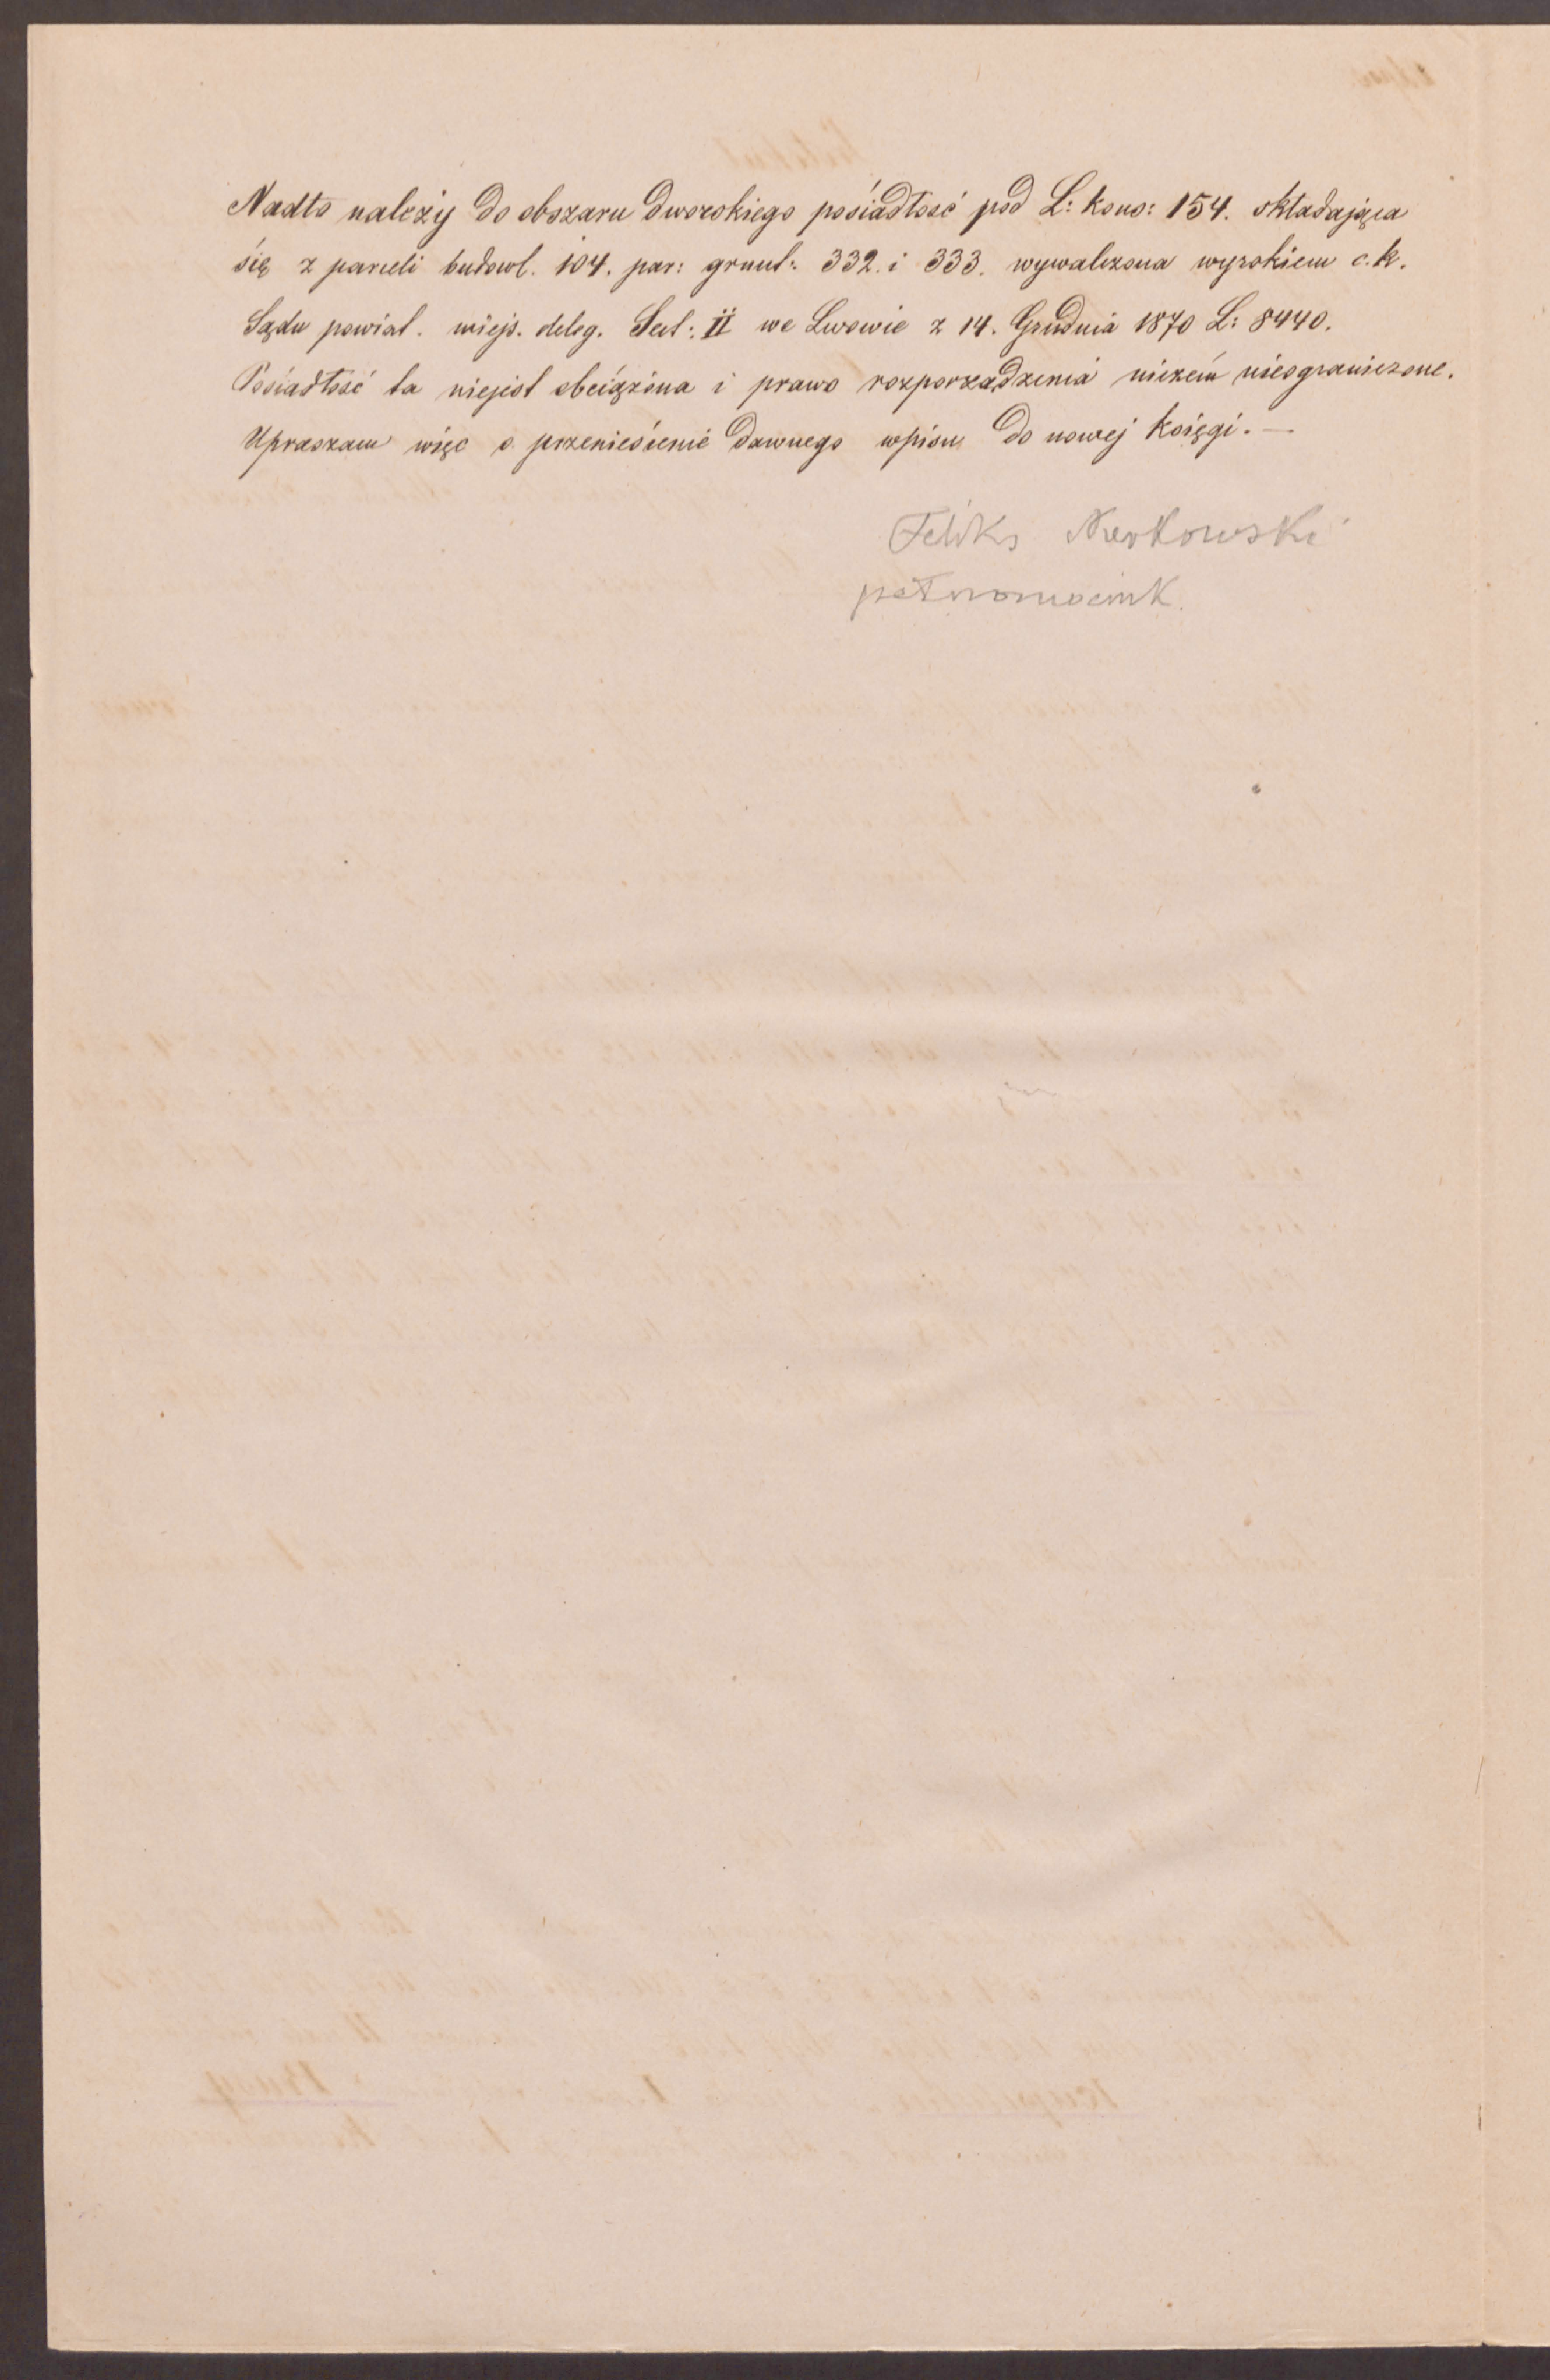 Nadto należy do obszaru dworskiego posiadłość pod L: kons: 154. składająca
się z parceli budowl. 104. par: grunt: 332. i 333. wywalczona wyrokiem c.k.
Sądu powiat. miejs. deleg. Sect: II we Lwowie z 14. Grudnia 1870 L: 8440.
Posiadłość ta niejest obciążona i prawo rozporządzenia niczem nieograniczone.
Upraszam więc o przeniesienie dawnego wpisu do nowej księgi. —
Feliks
pełnomocnik.